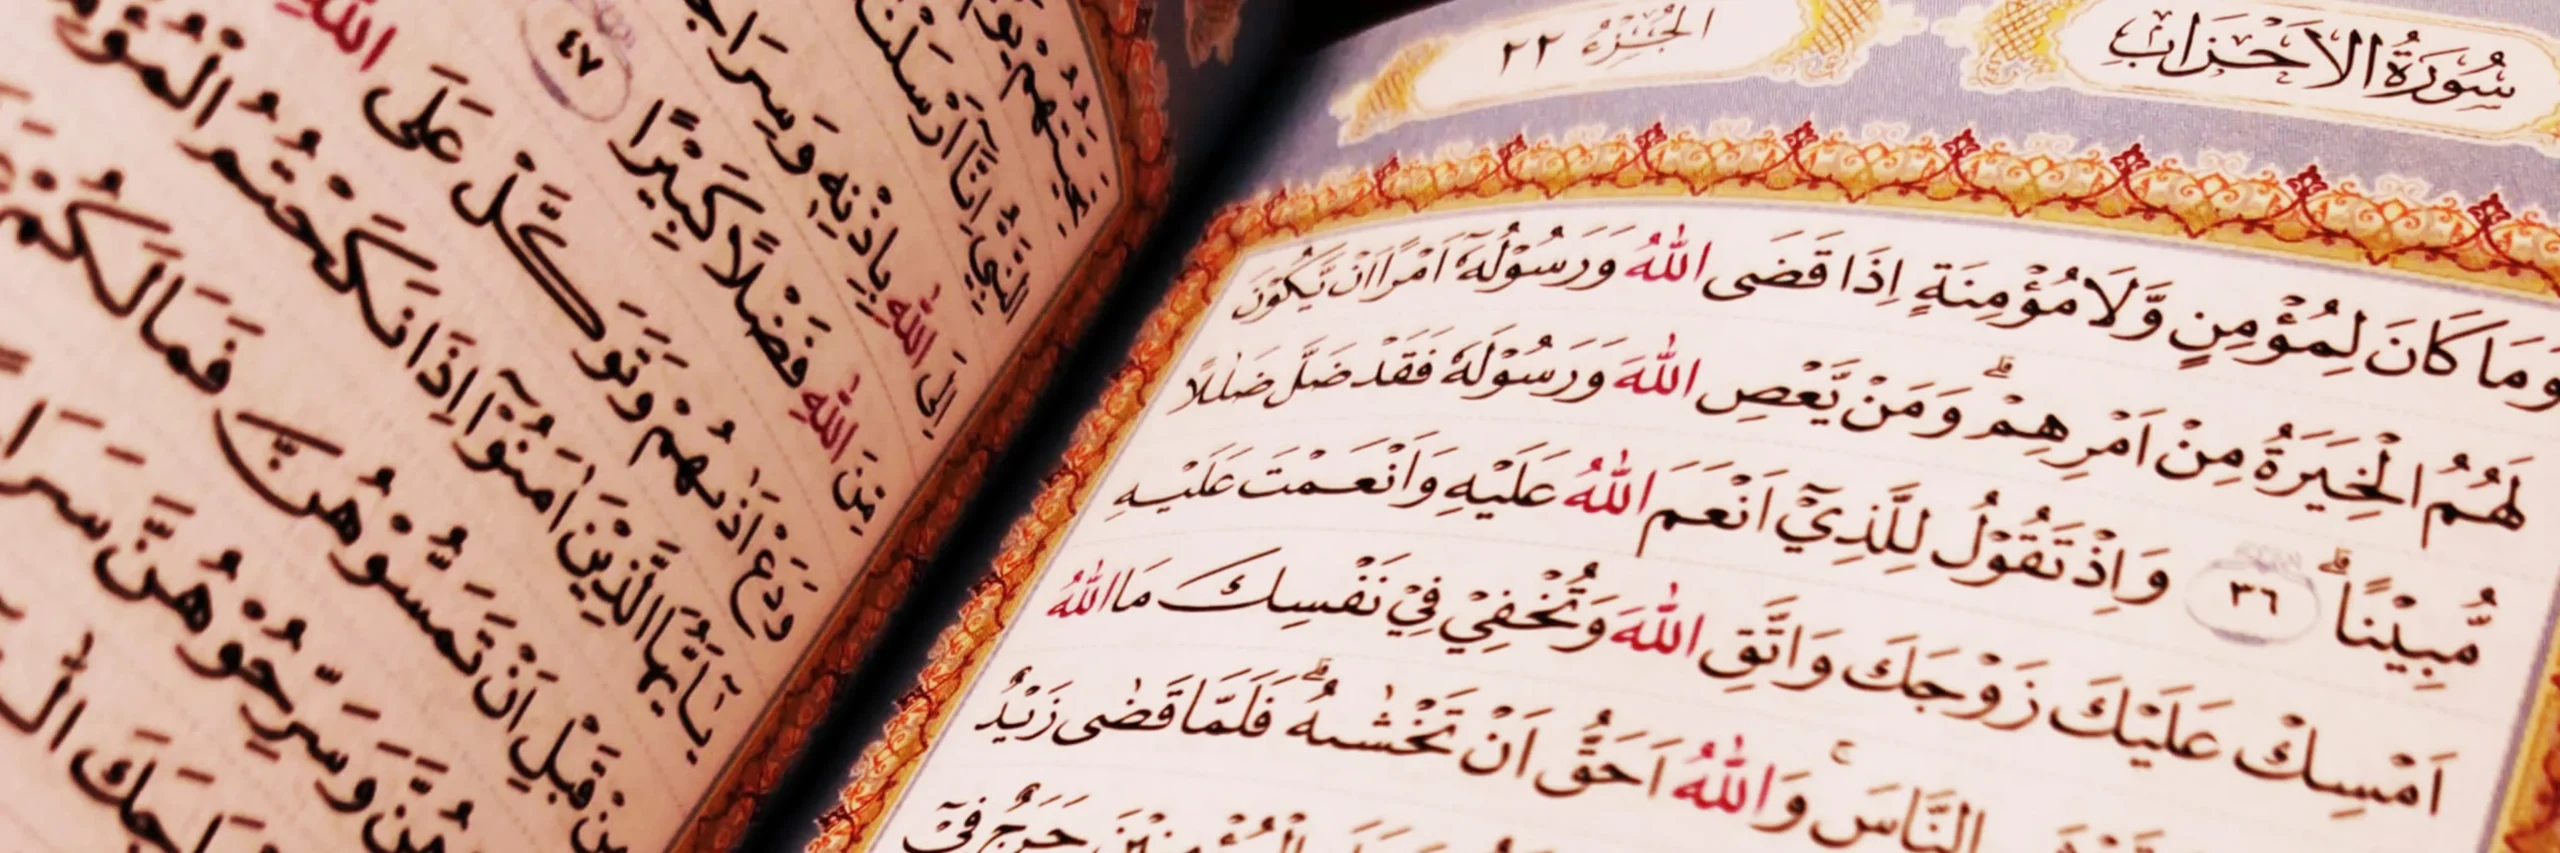 سُوْرَةُ الْاَحْزَاب
الْجُزْءُ ٢٢
وَمَا كَانَ لِمُؤْمِنٍ وَّلَا مُؤْمِنَةٍ اِذَا قَضَى اللّٰهُ وَرَسُوْلُهٗٓ اَمْرًا اَنْ يَّكُوْنَ
لَهُمُ الْخِيَرَةُ مِنْ اَمْرِهِمْ ۗ وَمَنْ يَّعْصِ اللّٰهَ وَرَسُوْلَهٗ فَقَدْ ضَلَّ ضَلٰلًا
مُّبِيْنًا ۗ ٣٦ وَاِذْ تَقُوْلُ لِلَّذِيْٓ اَنْعَمَ اللّٰهُ عَلَيْهِ وَاَنْعَمْتَ عَلَيْهِ
اَمْسِكْ عَلَيْكَ زَوْجَكَ وَاتَّقِ اللّٰهَ وَتُخْفِيْ فِيْ نَفْسِكَ مَا اللّٰهُ
النَّاسَ ۚ وَاللّٰهُ اَحَقُّ اَنْ تَخْشٰىهُ ۗ فَلَمَّا قَضٰى زَيْدٌ
حَرَجٌ فِيْٓ
النَّبِيُّ اِنَّآ اَرْسَلْنٰ
اِلَى اللّٰهِ بِاِذْنِهٖ وَسِرَاجًا
مِّنَ اللّٰهِ فَضْلًا كَبِيْرًا ٤٧
وَدَعْ اَذٰىهُمْ وَتَوَكَّلْ عَلَى اللّٰهِ
يٰٓاَيُّهَا الَّذِيْنَ اٰمَنُوْٓا اِذَا نَكَحْتُمُ الْمُؤْمِ
مِنْ قَبْلِ اَنْ تَمَسُّوْهُنَّ فَمَا لَكُمْ
وَسَرِّحُوْهُنَّ سَرَا